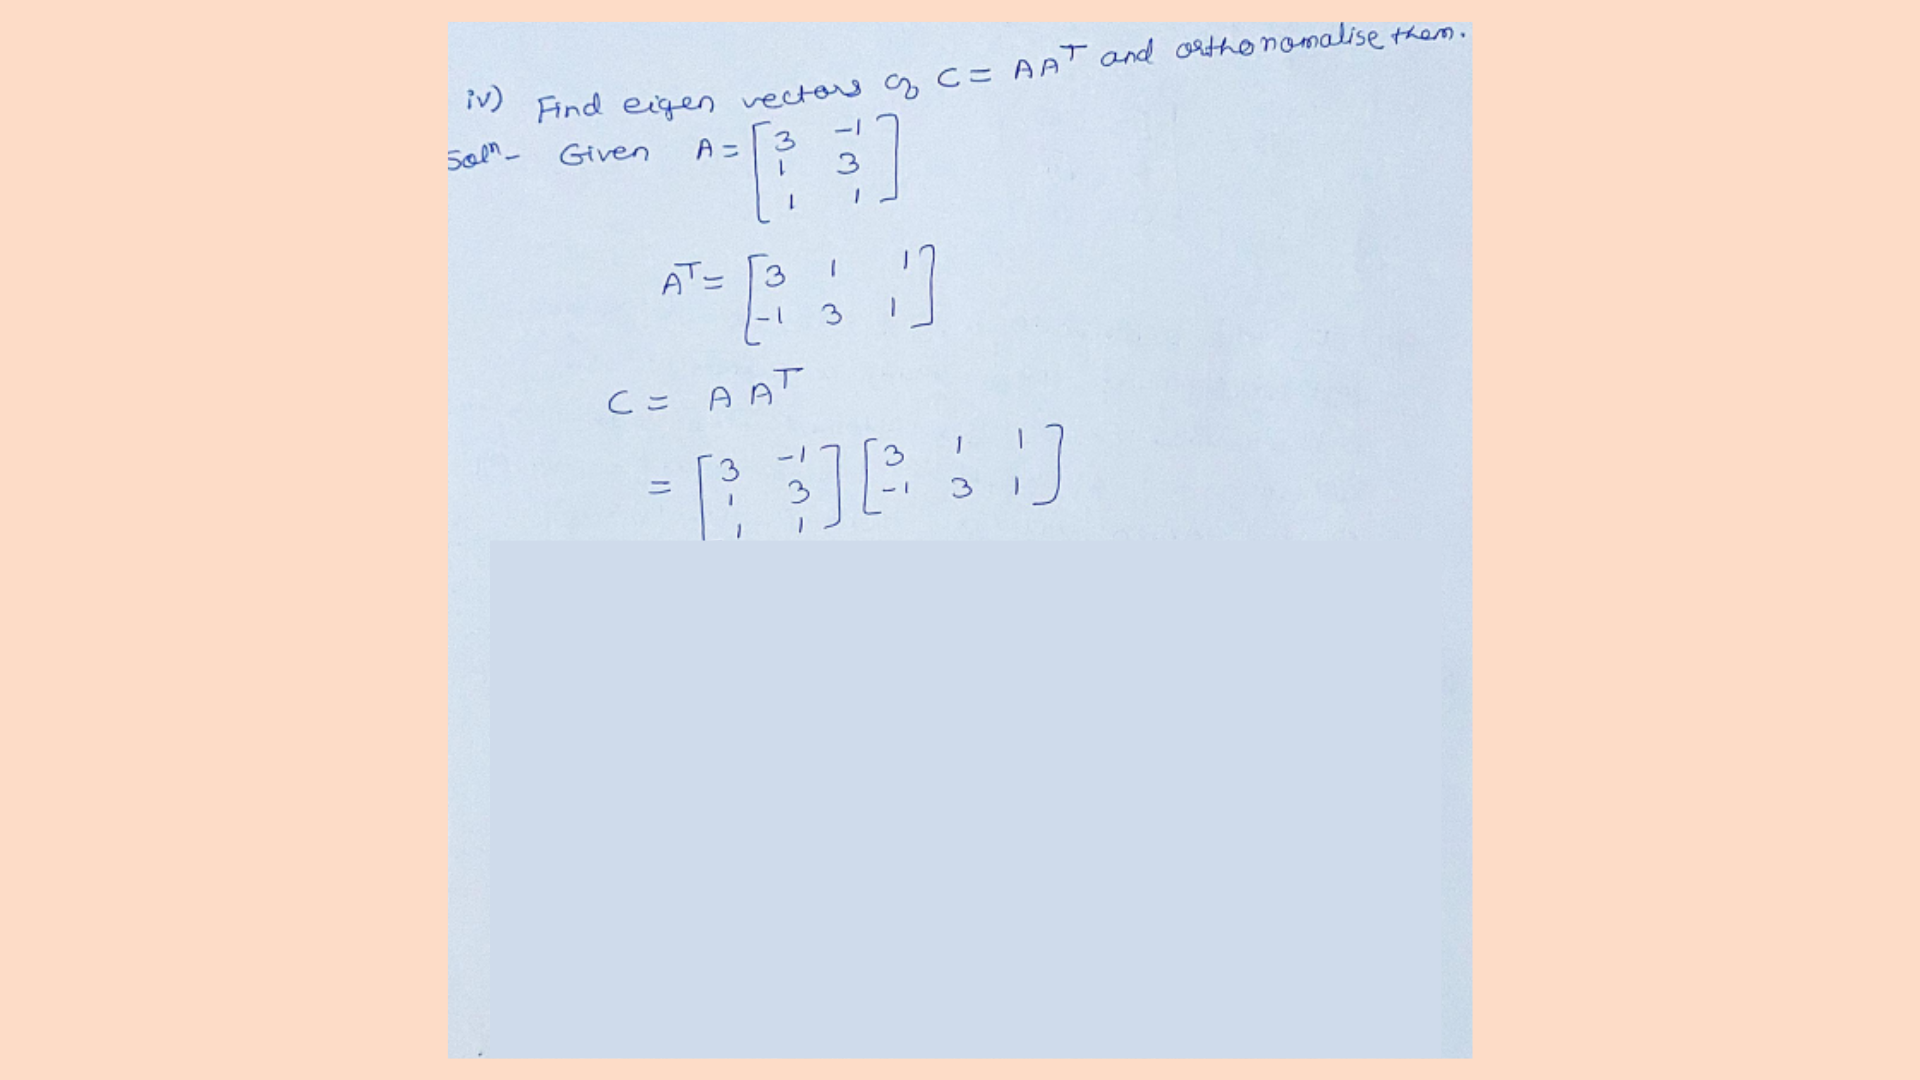 iv) Find eigen vectors of C = AAᵀ and orthonomalise them.
Solⁿ- Given A = [3 -1
1 3
1 1]
Aᵀ = [3 1 1
-1 3 1]
C = A Aᵀ
= [3 -1
1 3
1 1] [3 1 1
-1 3 1]